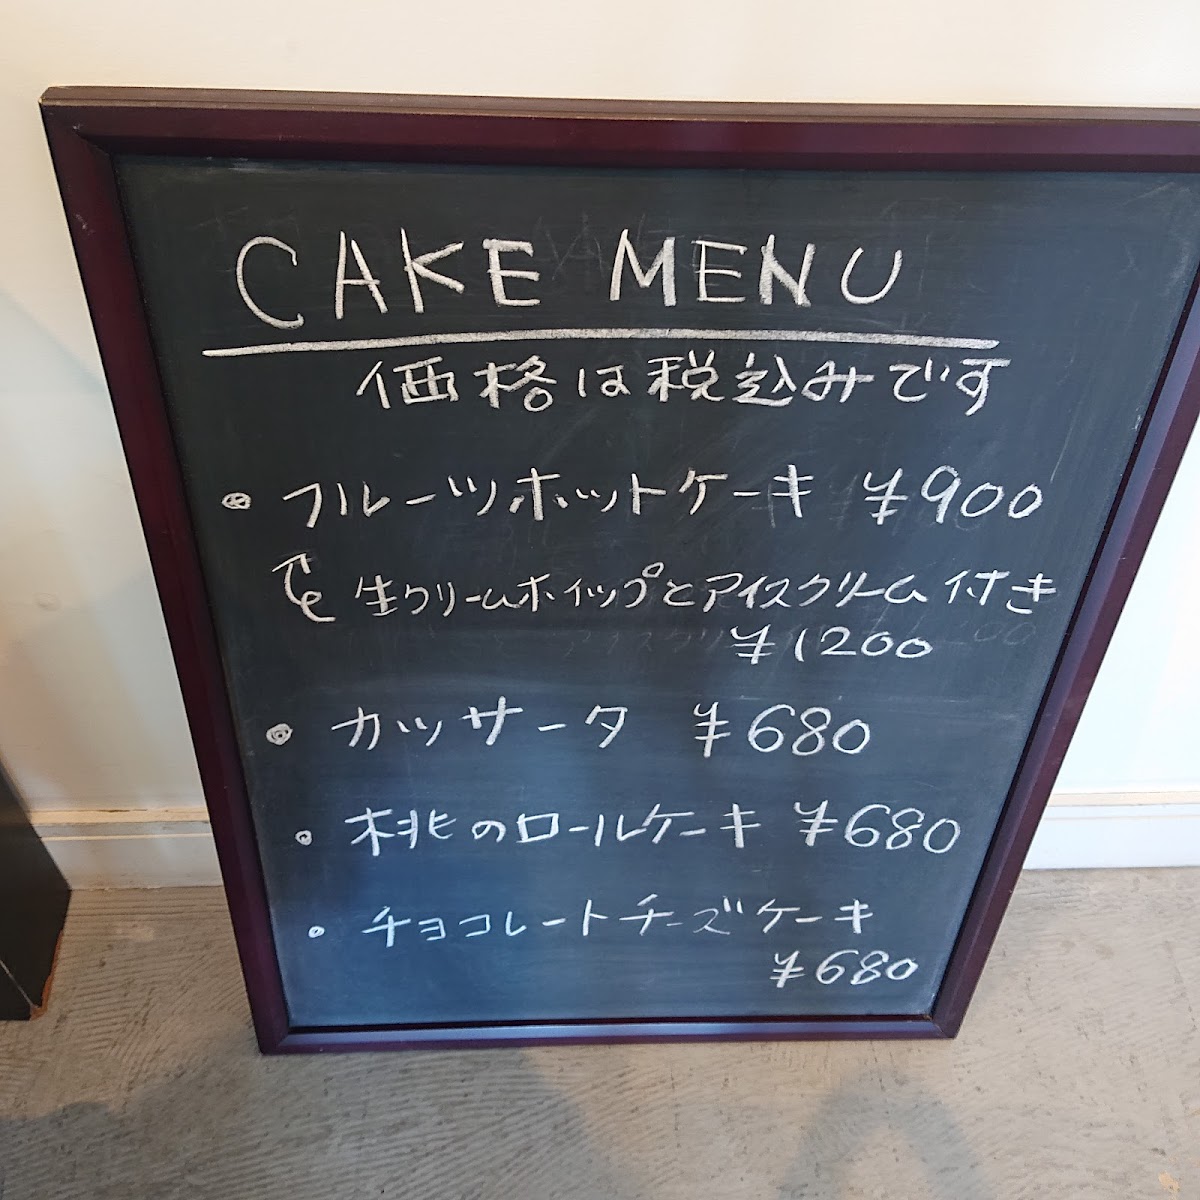 CAKE MENU
価格は税込みです
• フルーツホットケーキ ¥900
生クリームホイップとアイスクリーム付き
¥1200
• カッサータ ¥680
• 桃のロールケーキ ¥680
• チョコレートチーズケーキ
¥680